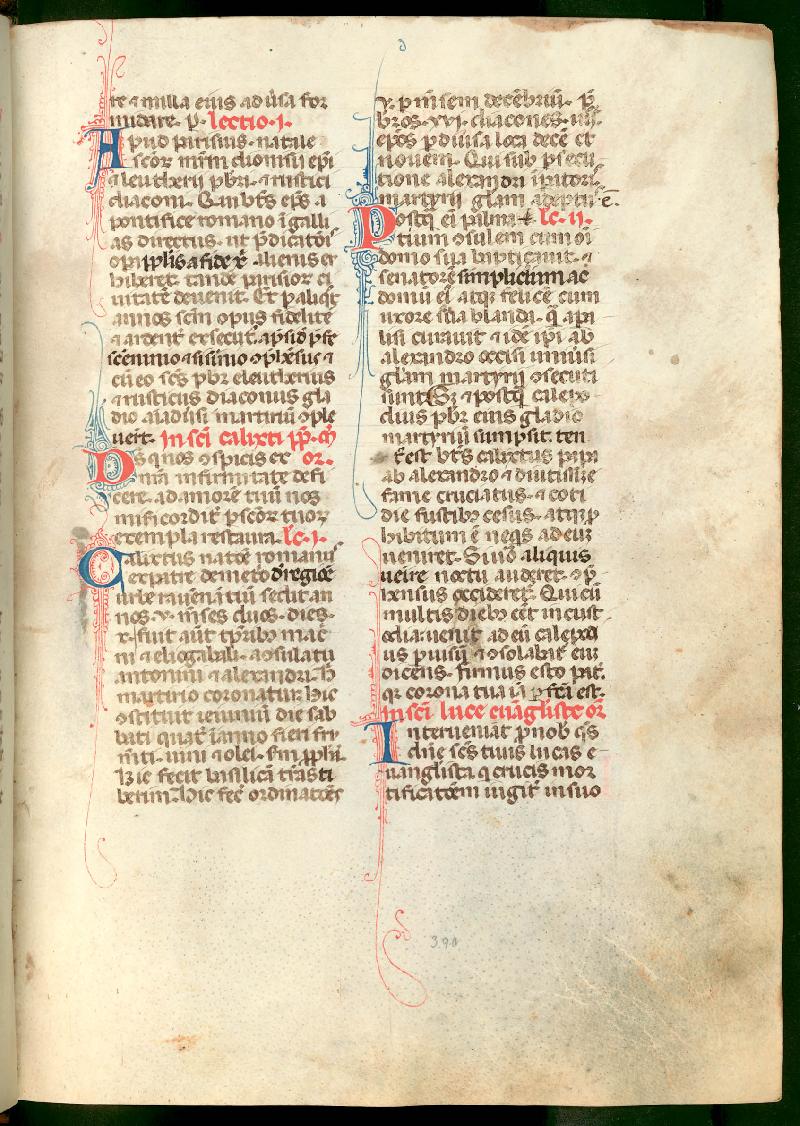 re ⁊ milla eius ad u̅sa for
midare. p̅. lectio. I.
Apud parisius. natale
sc̅or̅ m̅rm dionisii epi
⁊ leutherii pbri. ⁊ rustici
diaconi. Qui bt̅s ep̅s a
pontifice romano i̅ galli
as directus. ut p̅dicatōis
alienis ex
hiberet. tande̅ parisior̅ ci
uitate̅ deuenit. Et p̲ aliqt̅
annos sc̅m opus fidelit̅
⁊ ardent̅ exsecut̅.
cu̅ eo sc̅s pbr eleutherius
⁊ rusticus diaconus gla
dio a̅iadu̅si martiriu̅ ꝯple
uert̅. In sc̅i calixti pp̅. ⁊ m̅
Ds̅ q nos ꝯspicis ex or̅.
n̅ra̅ infirmitate defi
cere. ad amore̅ tuu̅ nos
mi̅ficordit̅ p̲ sc̅or̅ tuor̅
exempla restaura. lc̅. I.
Calixtus natōe romanus
ex patre dometo d̅ regioe̅
urbe rauena̅tiu̅ sedit an
nos. v. m̅ses duos. dies.
x. fuit aut̅ tp̅rib; mac̅
ni ⁊ eliogabali. a ꝯsulatu
antonini ⁊ alexandri. h̅
martirio coronatur. hic
ꝯstituit ieiuniu̅ die sab
bati quat̅ i̅ anno fieri fru̅
m̅ti. uini ⁊ olei. s̅m p̅ph̅i.
Hic fecit basilica̅ tra̅sti
berim. Hic fec̅ ordinatōes
v. p̲ m̅sem dece̅briu̅. p̅
bros. xvi. diacones. iiii.
ep̅os p̲ diuisa loca dece̅ et
nouem. Qui sub p̲secu
tione alexandri i̅patoris
martyrii gl̅am adeptus e̅.
Postq̅ ei palma lc̅. II.
tium ꝯsulem cum oi̅
domo sua baptiçauit. ⁊
senatore̅ simplicium ac̅
domu̅ ei̅ atq; felice̅ cum
uxore sua blanda. q̅ a pa
lisi curauit ⁊ ide̅ ip̅i ab
alexandro occisi unius̅i
gl̅am martyrii ꝯsecuti
sunt. S; ⁊ postq̅ calepo
dius pbr eius gladio
martyriu̅ sumpsit. ten
t̅ est bt̅s calixtus papa
ab alexandro ⁊ diutissi̅e
fame cruciatus. ⁊ coti
die fustib; cesus. atq; p̲
hibitum e̅ neqs ad eu̅
ueniret. Si uo̅ aliquis
uei̅re noctu auderet. ꝯp̅
he̅nsus occideret̅. Qui cu̅
multis dieb; ee̅t in cust
odia. uenit ad eu̅ calepo̅di
us p̲ uisu̅ ⁊ ꝯsolabat̅ eu̅
dicens. firmus esto pat̅.
qr̅ corona tua ia̅ p̲fc̅a est.
In sc̅i luce eua̅gliste or̅
Interueniat p̲ nob̅ qs̅
dn̅e sc̅s tuus lucas e
uanglista q crucis mor
tificatōem iugit̅ in suo
390